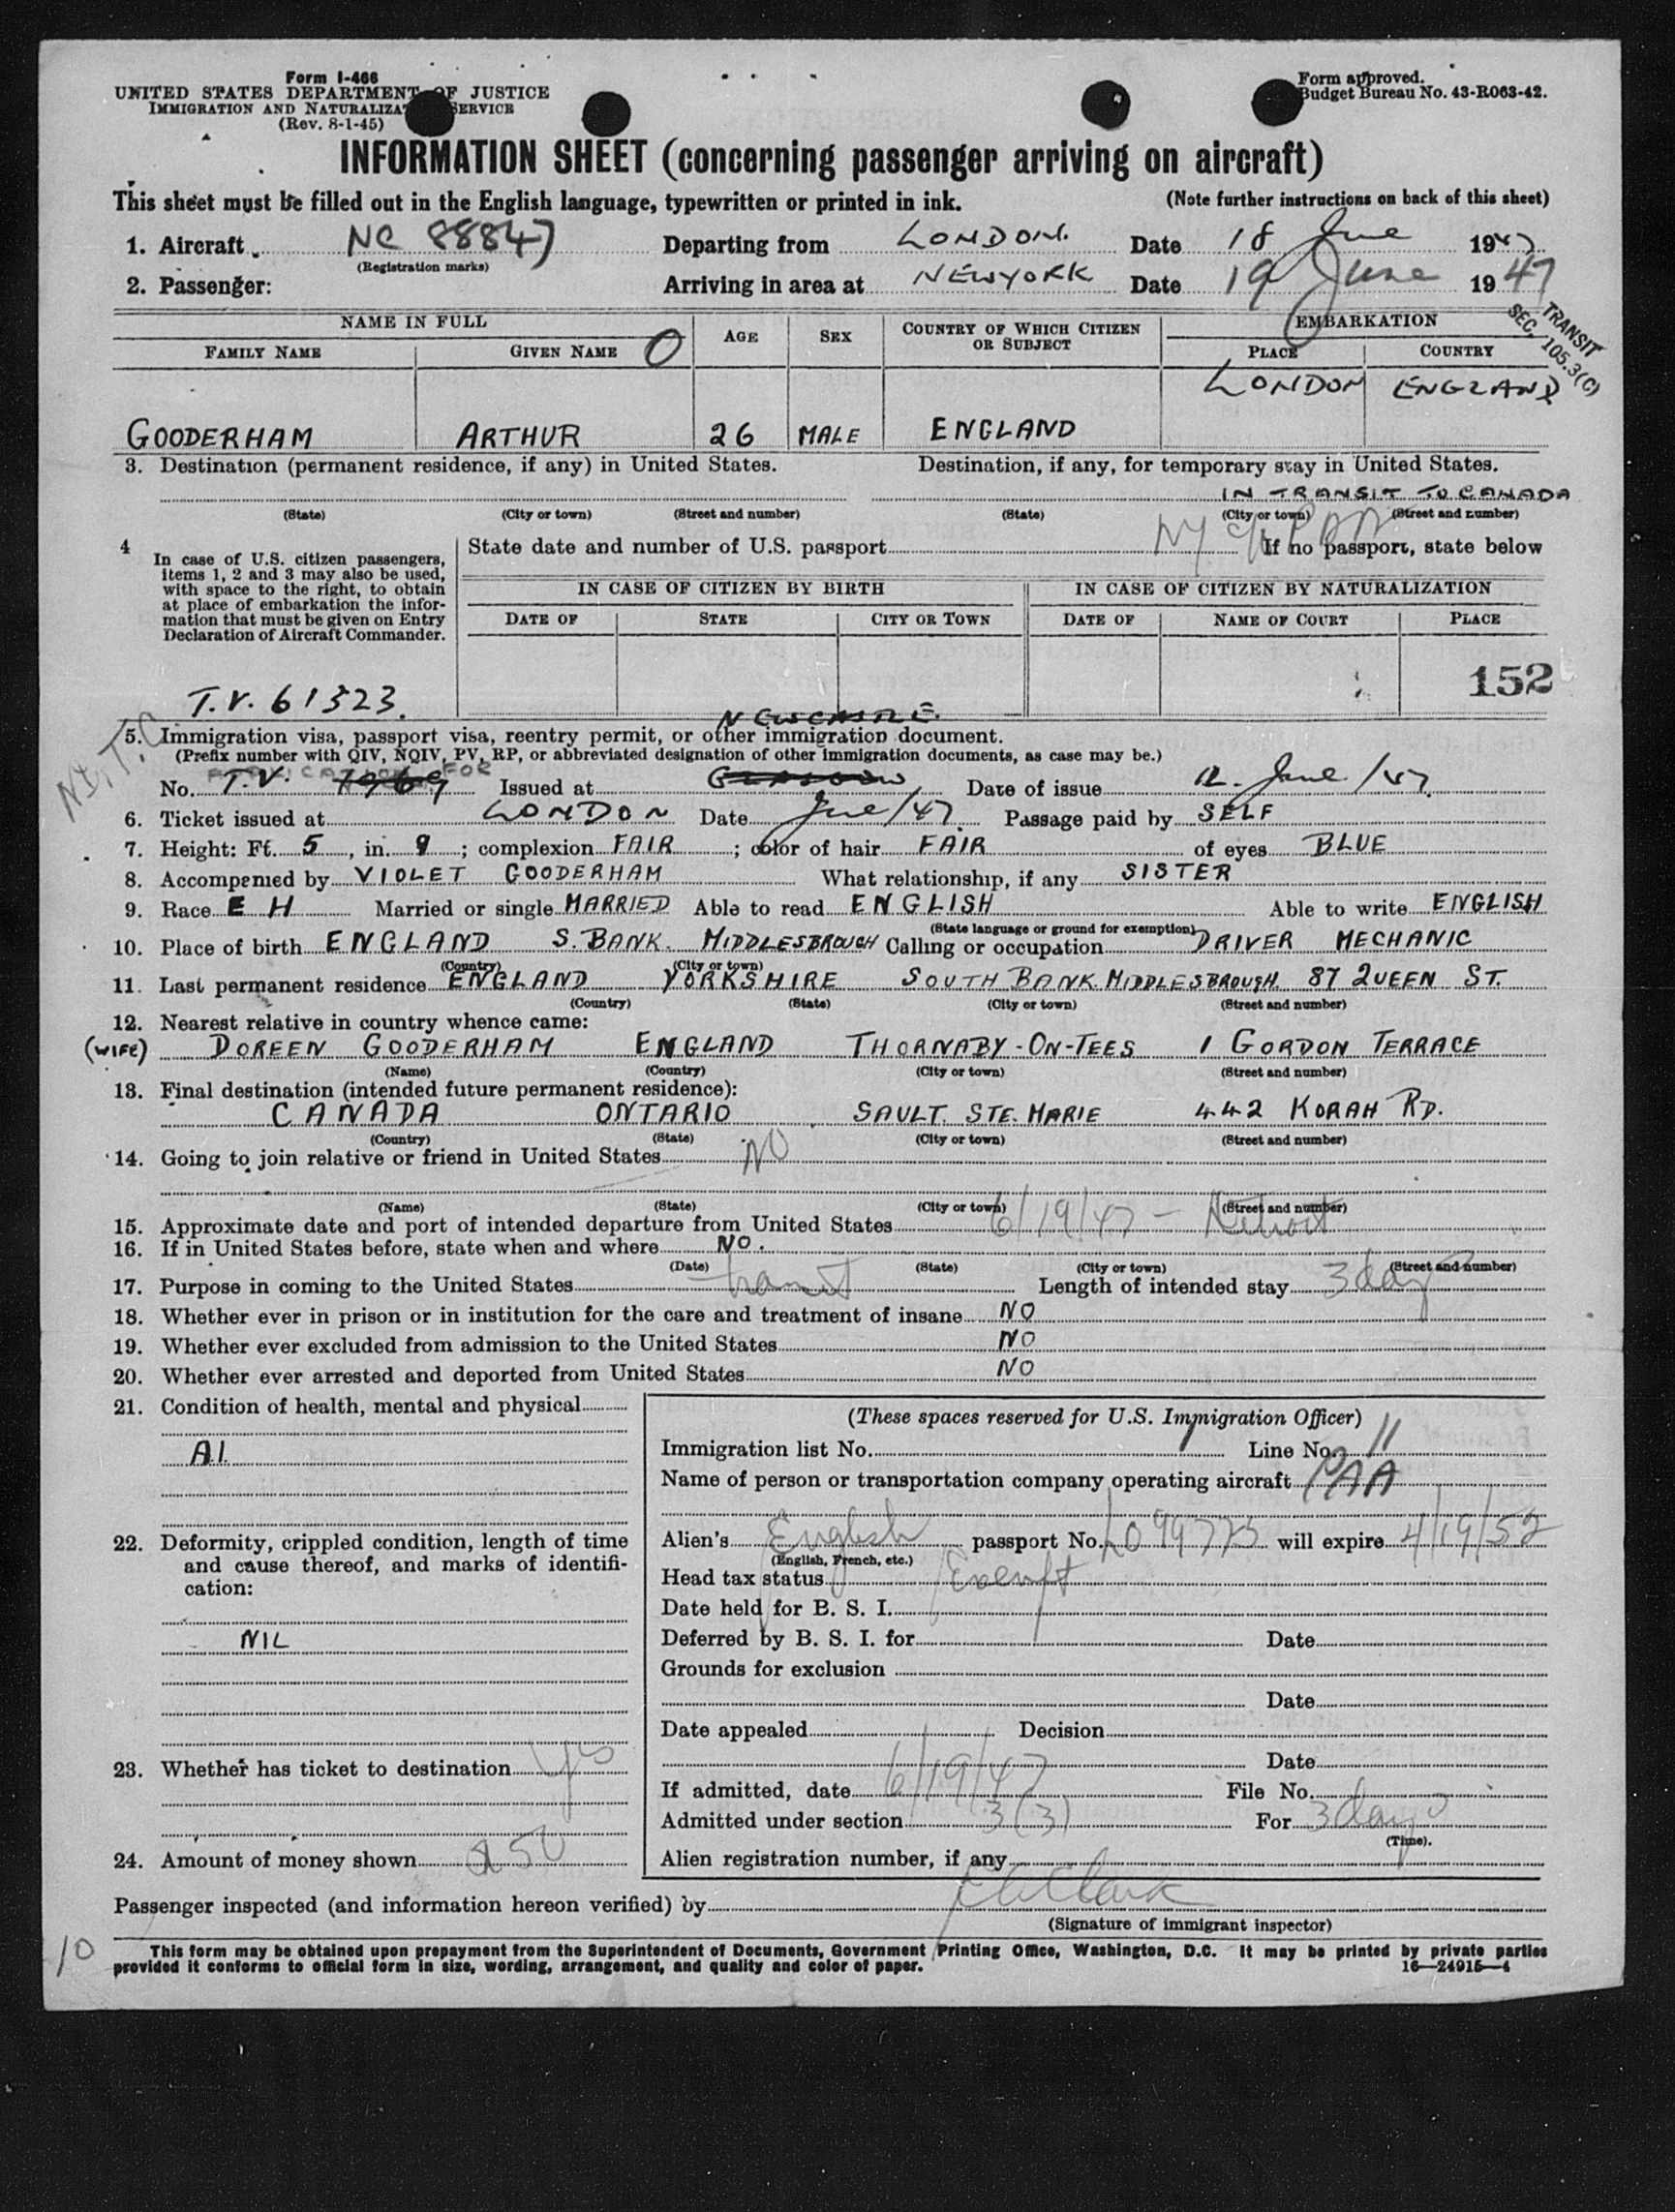 Form I-466
UNITED STATES DEPARTMENT OF JUSTICE
IMMIGRATION AND NATURALIZAT SERVICE
(Rev. 8-1-45)
Form approved.
Budget Bureau No. 43-R063-42.
INFORMATION SHEET (concerning passenger arriving on aircraft)
This sheet must be filled out in the English language, typewritten or printed in ink. (Note further instructions on back of this sheet)
1. Aircraft NC 88847 Departing from LONDON. Date 18 June 1947
(Registration marks)
2. Passenger: Arriving in area at NEWYORK Date 19 June 1947
TRANSIT
SEC. 105.3(C)
NAME IN FULL AGE SEX COUNTRY OF WHICH CITIZEN OR SUBJECT EMBARKATION
FAMILY NAME GIVEN NAME O PLACE COUNTRY
LONDON ENGLAND
GOODERHAM ARTHUR 26 MALE ENGLAND
3. Destination (permanent residence, if any) in United States. Destination, if any, for temporary stay in United States.
IN TRANSIT TO CANADA
(State) (City or town) (Street and number) (State) (City or town) (Street and number)
4 In case of U.S. citizen passengers, items 1, 2 and 3 may also be used, with space to the right, to obtain at place of embarkation the information that must be given on Entry Declaration of Aircraft Commander.
State date and number of U.S. passport If no passport, state below
IN CASE OF CITIZEN BY BIRTH IN CASE OF CITIZEN BY NATURALIZATION
DATE OF STATE CITY OR TOWN DATE OF NAME OF COURT PLACE
152
T.V. 61323.
NEWCASTLE.
5. Immigration visa, passport visa, reentry permit, or other immigration document.
(Prefix number with QIV, NQIV, PV, RP, or abbreviated designation of other immigration documents, as case may be.)
No. T.V. 7969 Issued at GLASGOW Date of issue 12. June /47.
6. Ticket issued at LONDON Date June/47. Passage paid by SELF
7. Height: Ft. 5, in. 9; complexion FAIR; color of hair FAIR of eyes BLUE
8. Accompanied by VIOLET GOODERHAM What relationship, if any SISTER
9. Race E H Married or single MARRIED Able to read ENGLISH Able to write ENGLISH
(State language or ground for exemption)
10. Place of birth ENGLAND S. BANK. MIDDLESBROUGH Calling or occupation DRIVER MECHANIC
(Country) (City or town)
11. Last permanent residence ENGLAND YORKSHIRE SOUTH BANK MIDDLESBROUGH 87 QUEEN ST.
(Country) (State) (City or town) (Street and number)
12. Nearest relative in country whence came:
(WIFE) DOREEN GOODERHAM ENGLAND THORNABY-ON-TEES 1 GORDON TERRACE
(Name) (Country) (City or town) (Street and number)
13. Final destination (intended future permanent residence):
CANADA ONTARIO SAULT. STE. MARIE 442 KORAH RD.
(Country) (State) (City or town) (Street and number)
14. Going to join relative or friend in United States NO
(Name) (State) (City or town) (Street and number)
15. Approximate date and port of intended departure from United States 6/19/47 - Detroit
16. If in United States before, state when and where NO.
(Date) (State) (City or town) (Street and number)
17. Purpose in coming to the United States transit Length of intended stay 3 day
18. Whether ever in prison or in institution for the care and treatment of insane NO
19. Whether ever excluded from admission to the United States NO
20. Whether ever arrested and deported from United States NO
21. Condition of health, mental and physical
A.1.
22. Deformity, crippled condition, length of time and cause thereof, and marks of identification:
NIL
23. Whether has ticket to destination yes
24. Amount of money shown 250
(These spaces reserved for U.S. Immigration Officer)
Immigration list No. 1 Line No. 11
Name of person or transportation company operating aircraft PAA
Alien's English passport No. L099773 will expire 4/19/52
(English, French, etc.)
Head tax status Exempt
Date held for B. S. I.
Deferred by B. S. I. for Date
Grounds for exclusion
Date
Date appealed Decision
Date
If admitted, date 6/19/47 File No.
Admitted under section 3(3) For 3 days
(Time).
Alien registration number, if any
Passenger inspected (and information hereon verified) by Clark
(Signature of immigrant inspector)
10
This form may be obtained upon prepayment from the Superintendent of Documents, Government Printing Office, Washington, D.C. It may be printed by private parties
provided it conforms to official form in size, wording, arrangement, and quality and color of paper. 16—24915-4